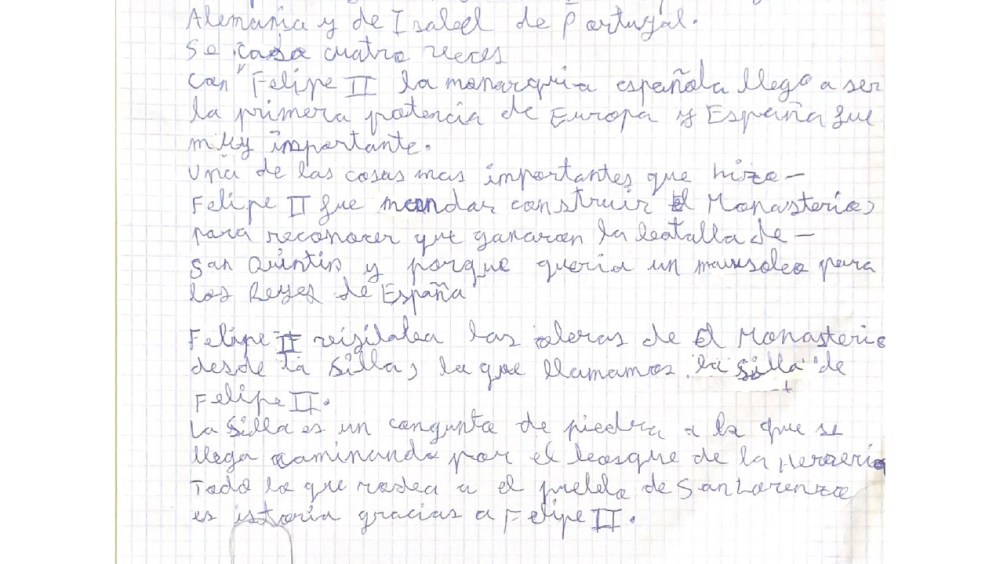 Alemania y de Isabel de Portugal.
Se casa cuatro veces
Con Felipe II la monarquia española llego a ser
la primera potencia de Europa y España fue
muy importante.
una de las cosas mas importantes que hizo-
Felipe II fue mandar construir el Monasterio,
para reconocer que ganaran la batalla de-
San Quintin y porque queria un mausoleo para
los Reyes de España
Felipe II visitaba las obras de el Monasterio
desde la Silla, la que llamamos la Silla de
Felipe II.
La Silla es un congunto de piedra a la que se
llega caminando por el bosque de la Herreria
Todo lo que rodea a el pueblo de San Lorenzo
es istoria gracias a Felipe II.